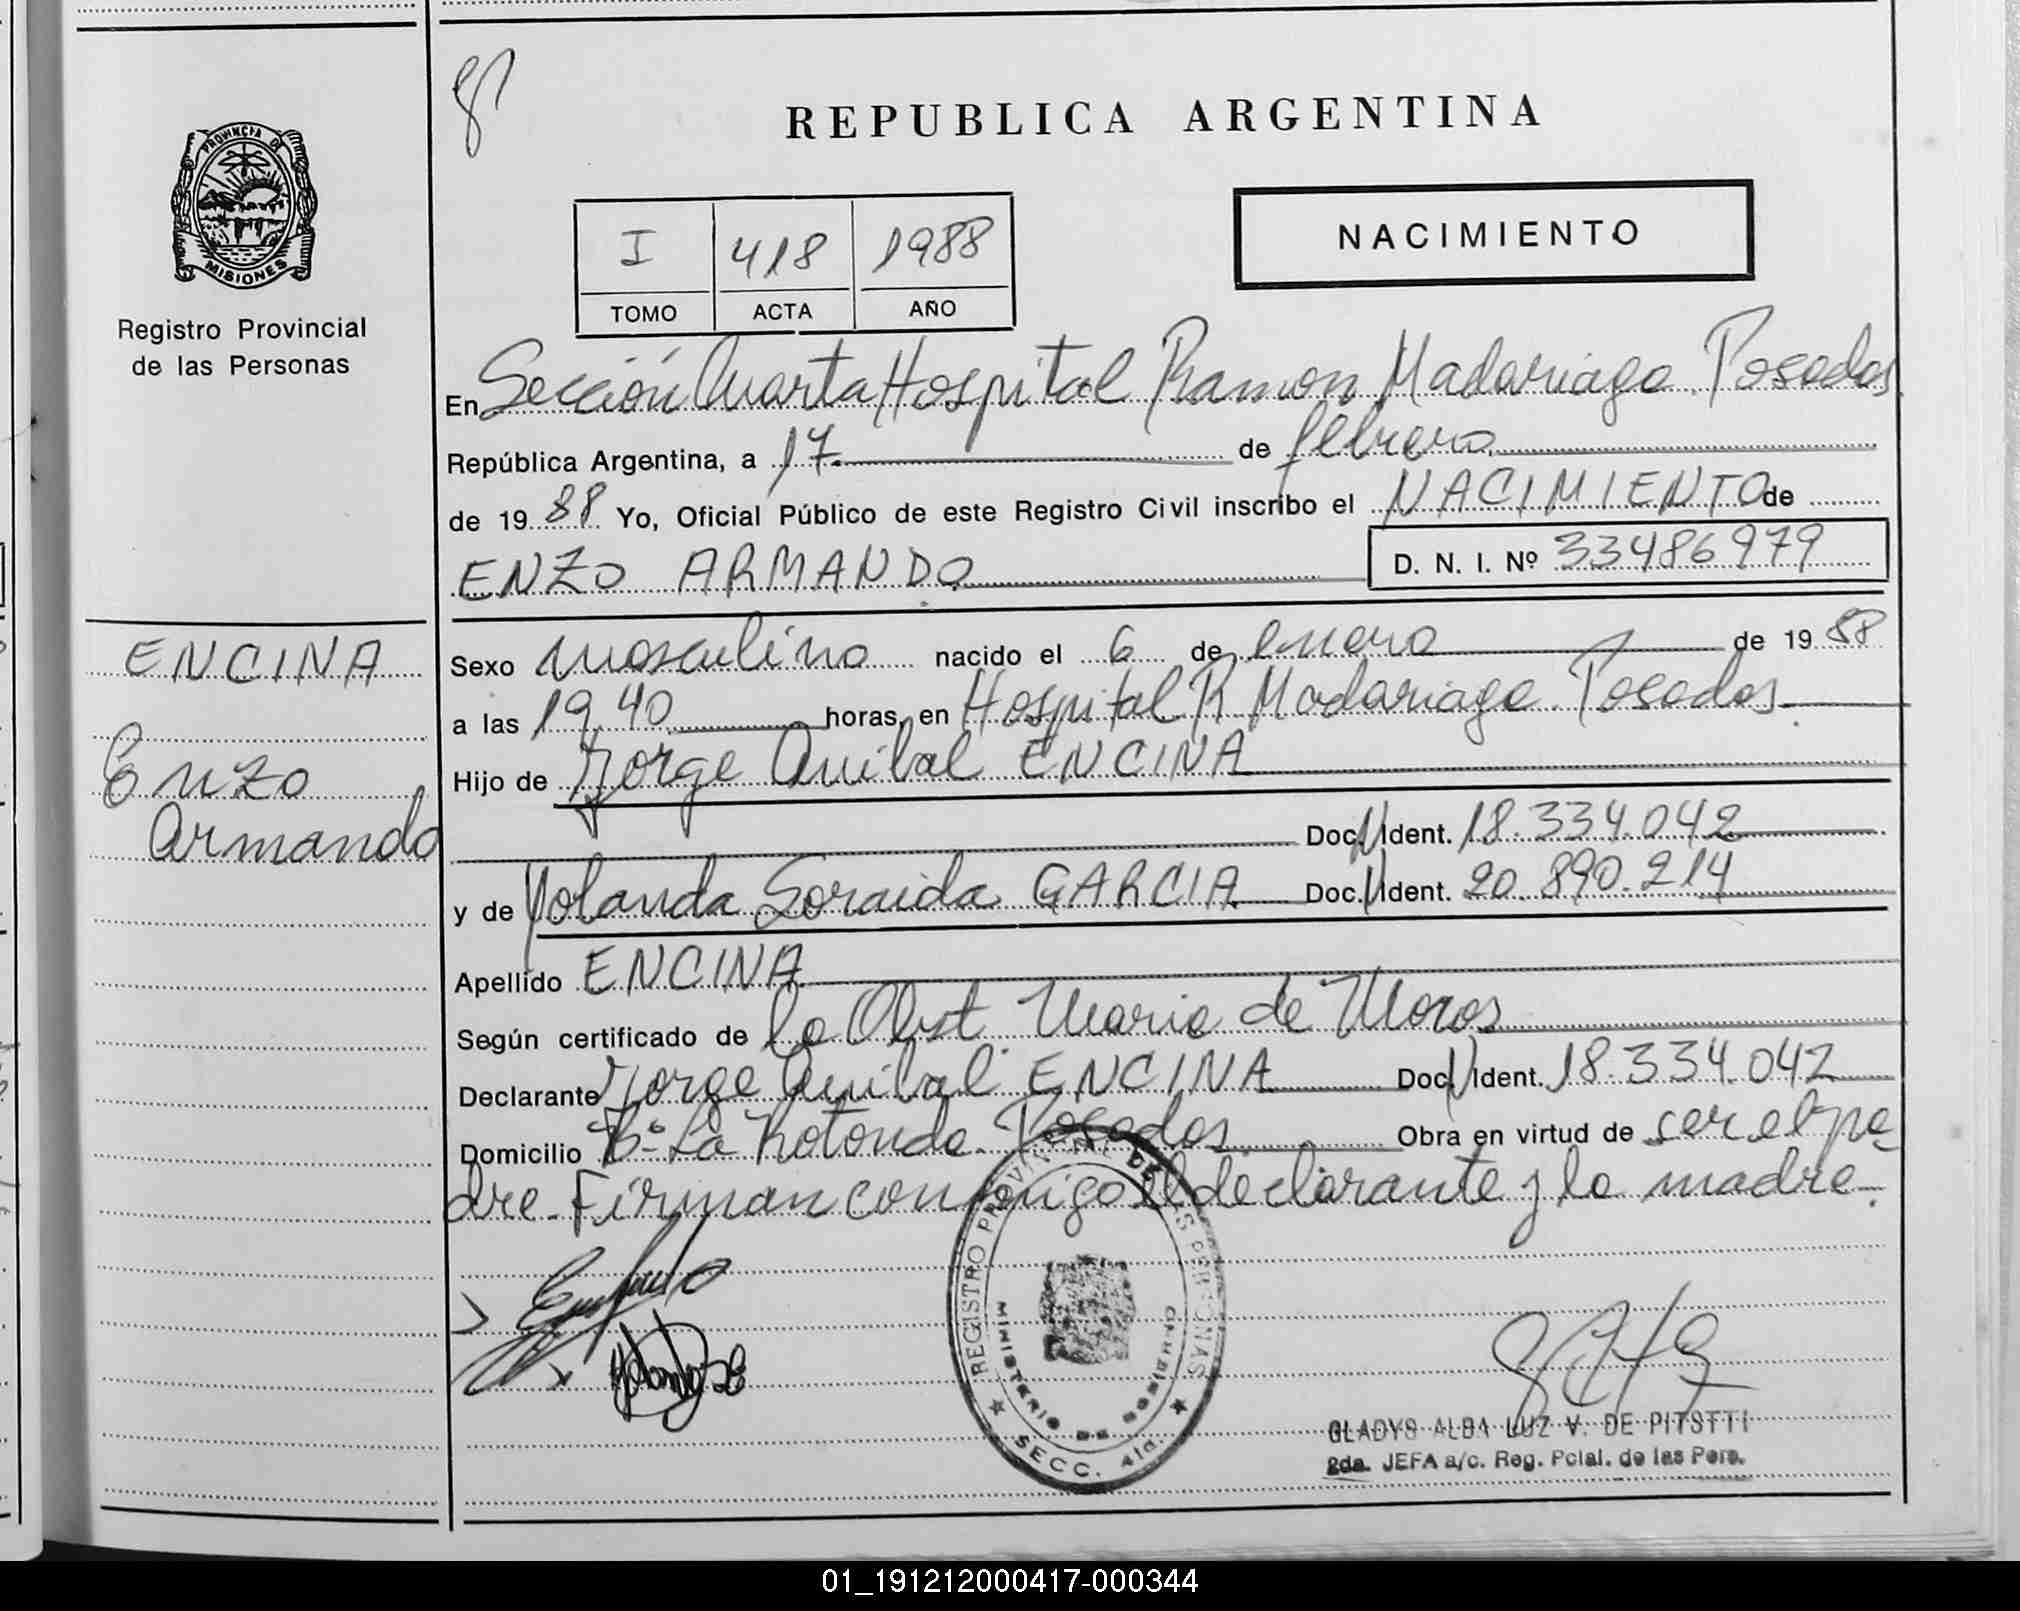 REPUBLICA ARGENTINA
PROVINCIA DE
MISIONES
Registro Provincial
de las Personas
I 418 1988
TOMO ACTA AÑO
NACIMIENTO
En Sección Cuarta Hospital Ramon Madariaga Posadas
República Argentina, a 17 de febrero
de 19 88 Yo, Oficial Público de este Registro Civil inscribo el NACIMIENTO de
ENZO ARMANDO D. N. I. Nº 33486979
ENCINA
Enzo
Armando
Sexo masculino nacido el 6 de enero de 19 88
a las 19,40 horas, en Hospital R Madariaga Posadas
Hijo de Jorge Anibal ENCINA
Doc. N Ident. 18.334.042
y de Yolanda Soraida GARCIA Doc. N Ident. 20.890.214
Apellido ENCINA
Según certificado de la Obst. Maria de Moros
Declarante Jorge Anibal ENCINA Doc. N Ident. 18.334.042
Domicilio Bº La Rotonda Posadas Obra en virtud de ser el pa-
dre. Firman conmigo el declarante y la madre.
REGISTRO PROVINCIAL DE LAS PERSONAS
MINISTERIO DE GOBIERNO
SECC. 4ta.
GLADYS ALBA LUZ V. DE PITSTTI
2da. JEFA a/c. Reg. Pcial. de las Pers.
01_191212000417-000344